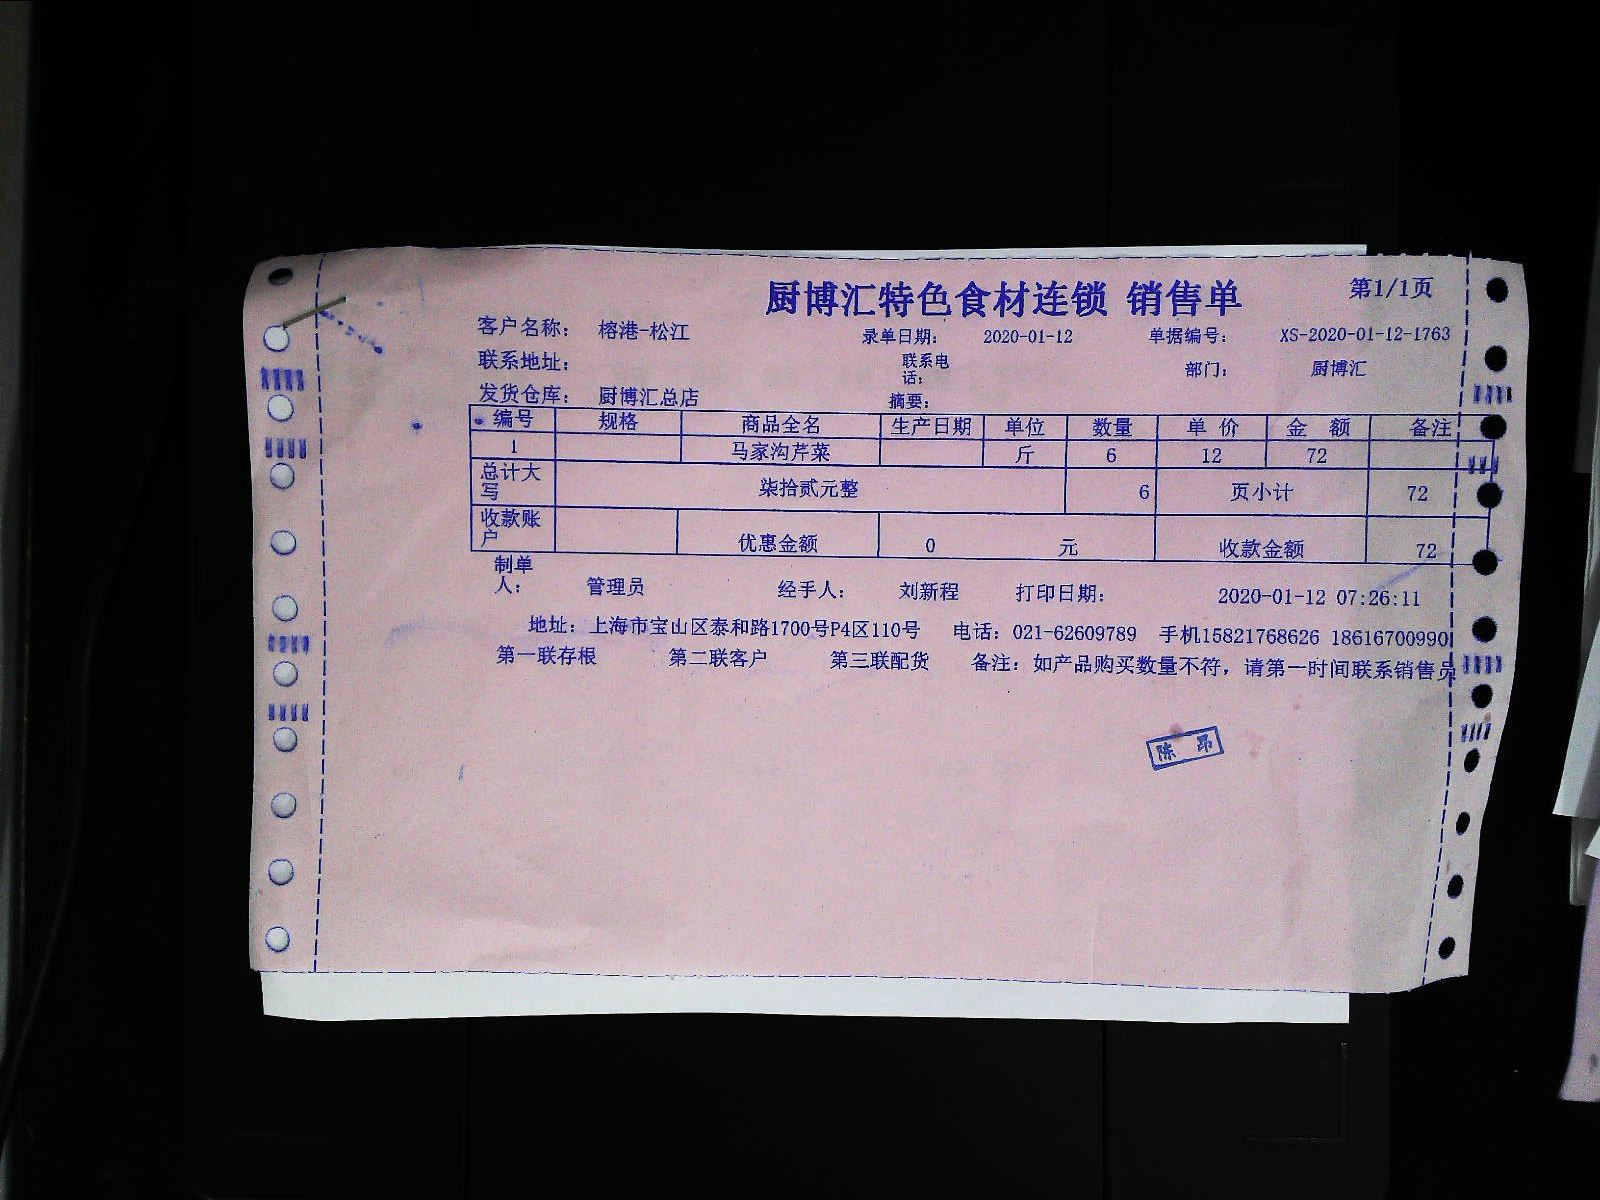 厨博汇特色食材连锁 销售单 第1/1页
客户名称： 榕港-松江 录单日期： 2020-01-12 单据编号： XS-2020-01-12-1763
联系地址： 联系电话： 部门： 厨博汇
发货仓库： 厨博汇总店 摘要：
编号 规格 商品全名 生产日期 单位 数量 单价 金额 备注
1 马家沟芹菜 斤 6 12 72
总计大写 柒拾贰元整 6 页小计 72
收款账户 优惠金额 0 元 收款金额 72
制单人： 管理员 经手人： 刘新程 打印日期： 2020-01-12 07:26:11
地址：上海市宝山区泰和路1700号P4区110号 电话：021-62609789 手机15821768626 18616700990
第一联存根 第二联客户 第三联配货 备注：如产品购买数量不符，请第一时间联系销售员
陈昂